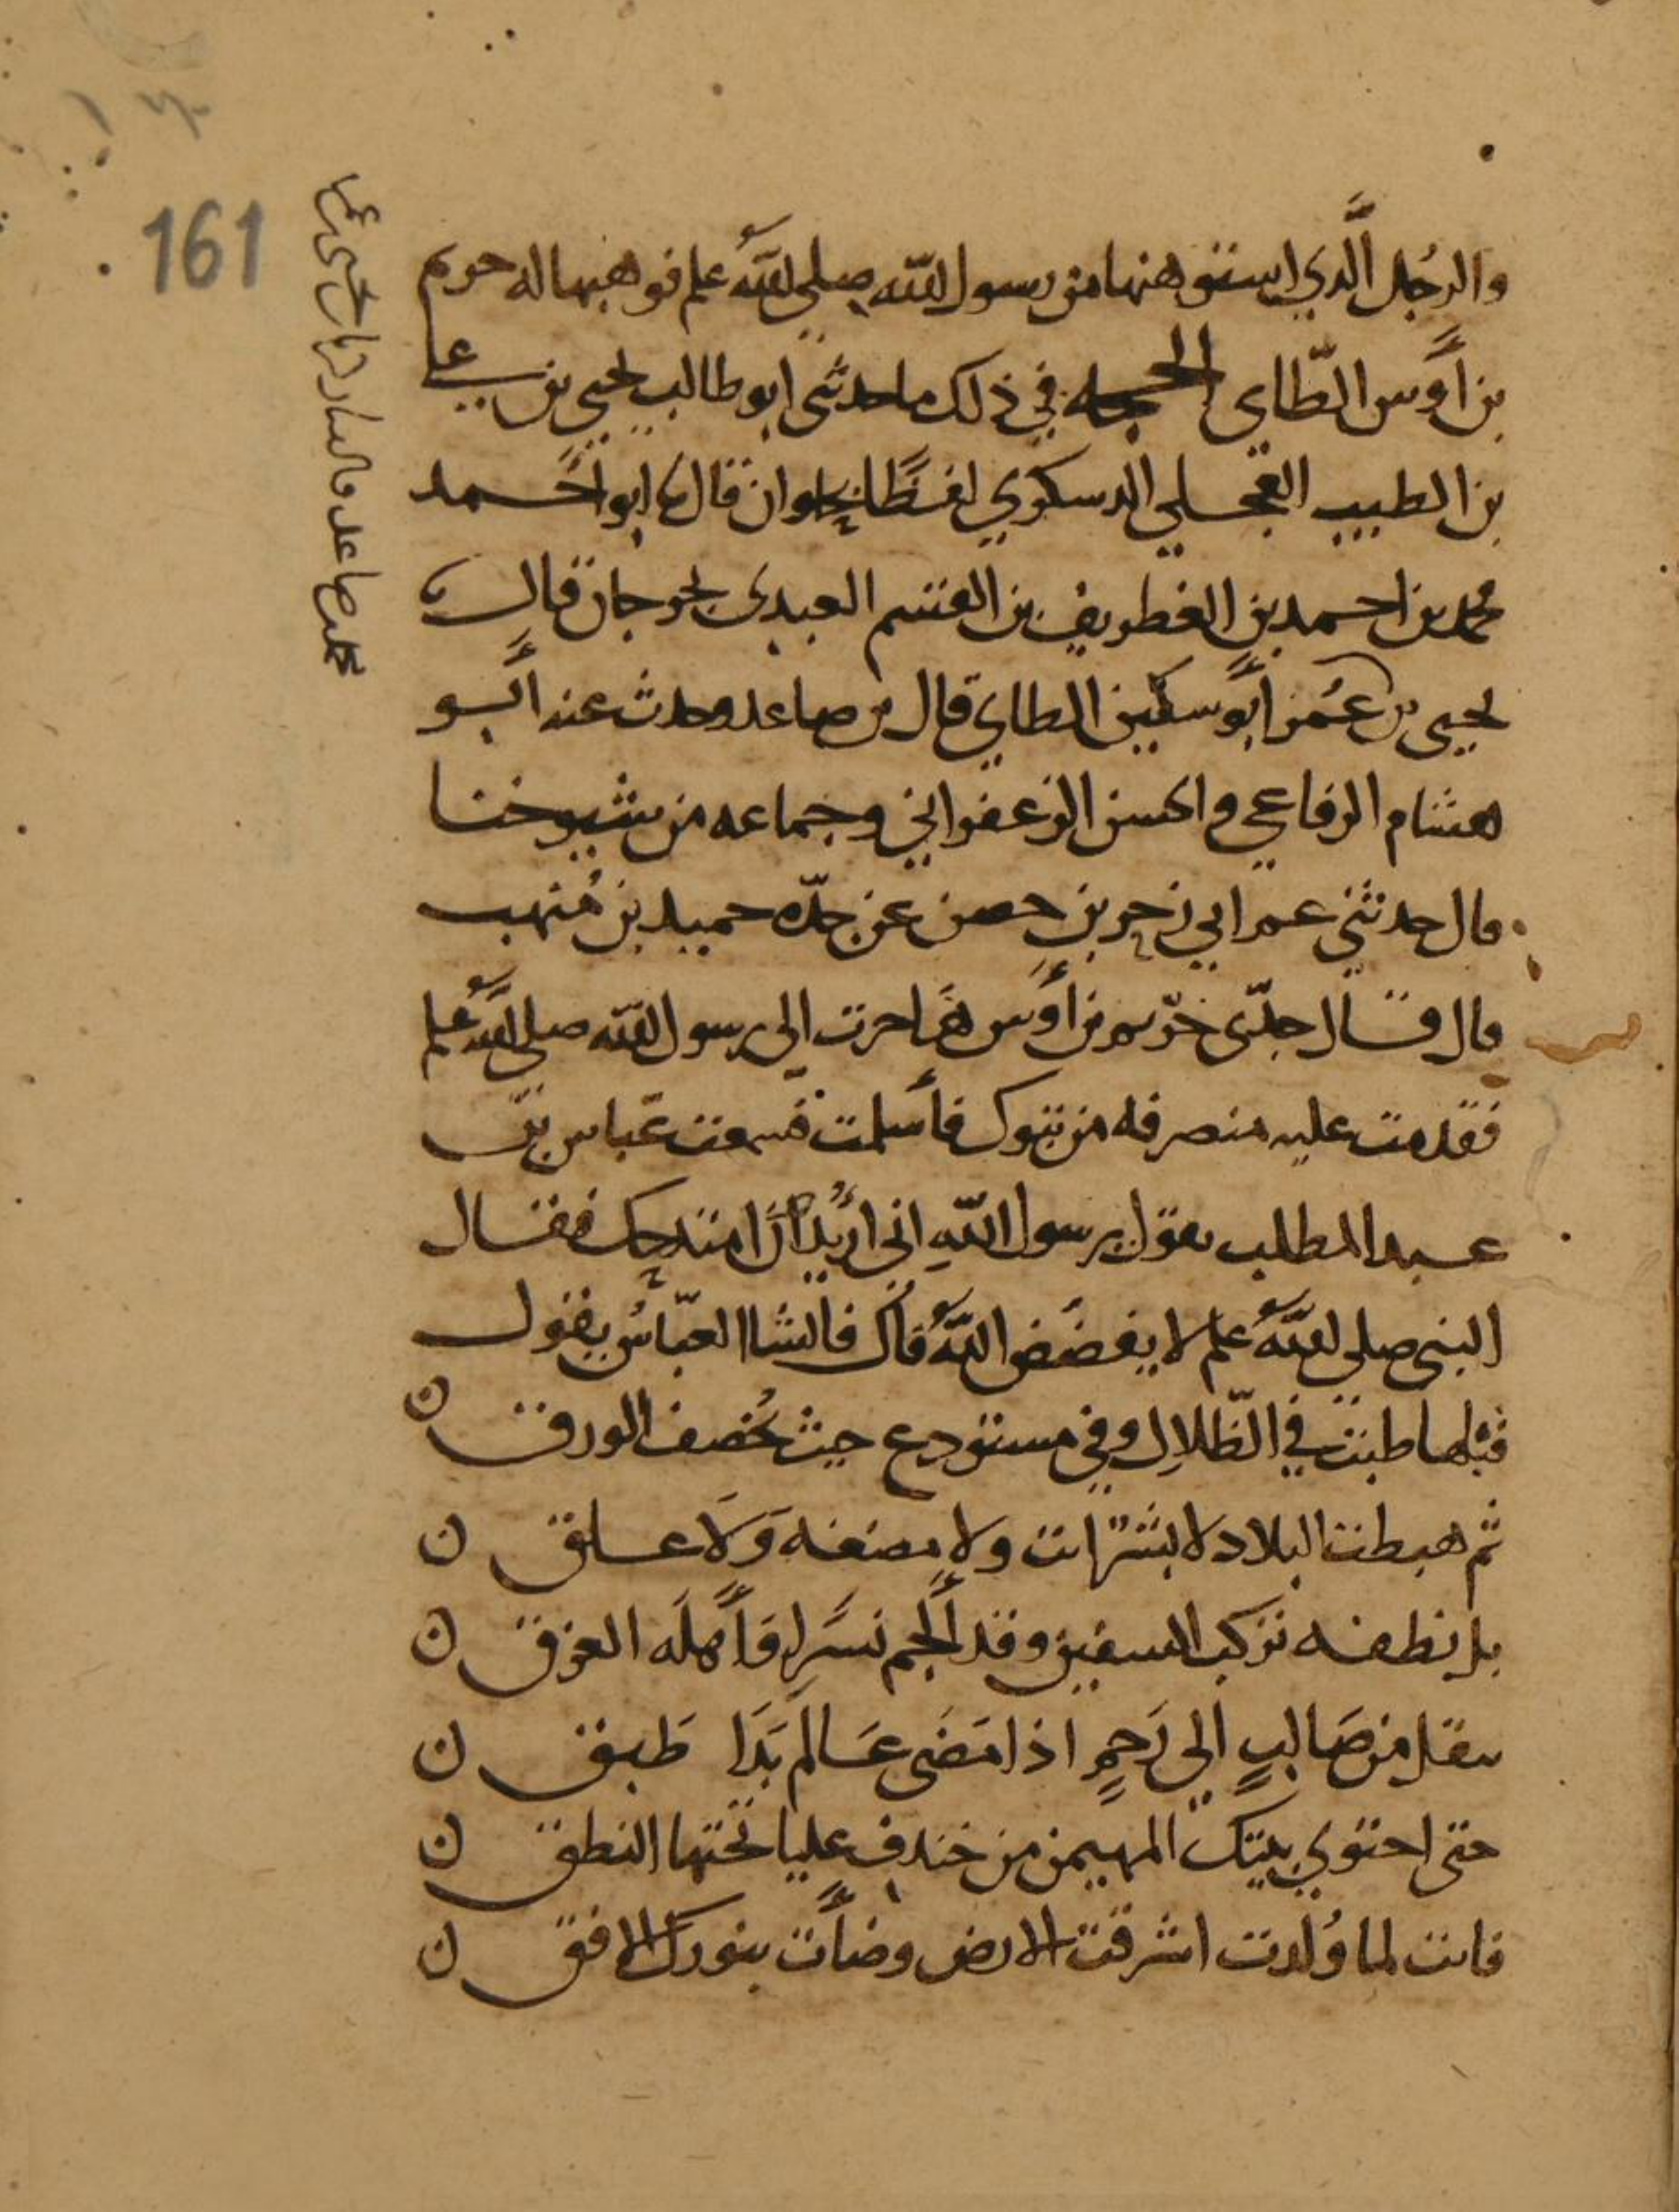 والرجل الَّذي استوهبها من رسول الله صلى الله علم فوهبها له خريم
بن أوس الطّاي الحجه في ذلك ما حدثنى ابو طالب يحيى بن علي
بن الطيب العجلي الدسكري لفظًا بحلوان قال نا ابو احمد
محمد بن احمد بن الغطريف بن القسم العبدى بجرجان قال نا
يحيى بن عُمر أبو سكين الطاي قال بن صاعد وحدث عنه أبو
هشام الرفاعي والحسن الزعفراني وجماعه من شيوخنا
قال حدثني عمر ابي زحر بن حصن عن جدّه حميد بن مُنهب
قال قال جدّى خريم بن أوس هَاجرت الى رسول الله صلى الله علم
فقدمت عليه منصرفه من تبوك فأسلمت فسمعت عبّاس بن
عبد المطلب يقول يرسول اللهِ انى اريدُ أن امتدحك فقال
النبى صلى الله علم لا يفضُض اللهُ فاك فانشا العبّاسُ يقول
قبلها طبت في الظّلالِ وفي مستودع حيث يُخصف الورق ن
ثم هبطت البلاد لا بشر انت ولا مضغه وَلَا علق ن
بل نطفه تركب السفين وقد أَلجم نسَرا وَأهلَه الغرق ن
تنقل من صَالبٍ الى رَحِمٍ اذا مَضَى عَالم بَدَا طَبق ن
حتى احتوى بيتك المهيمن من خندف عليا تحتها النطق ن
فانت لما وُلدت اشرقت الارض وضأت بنورك الافق ن
161